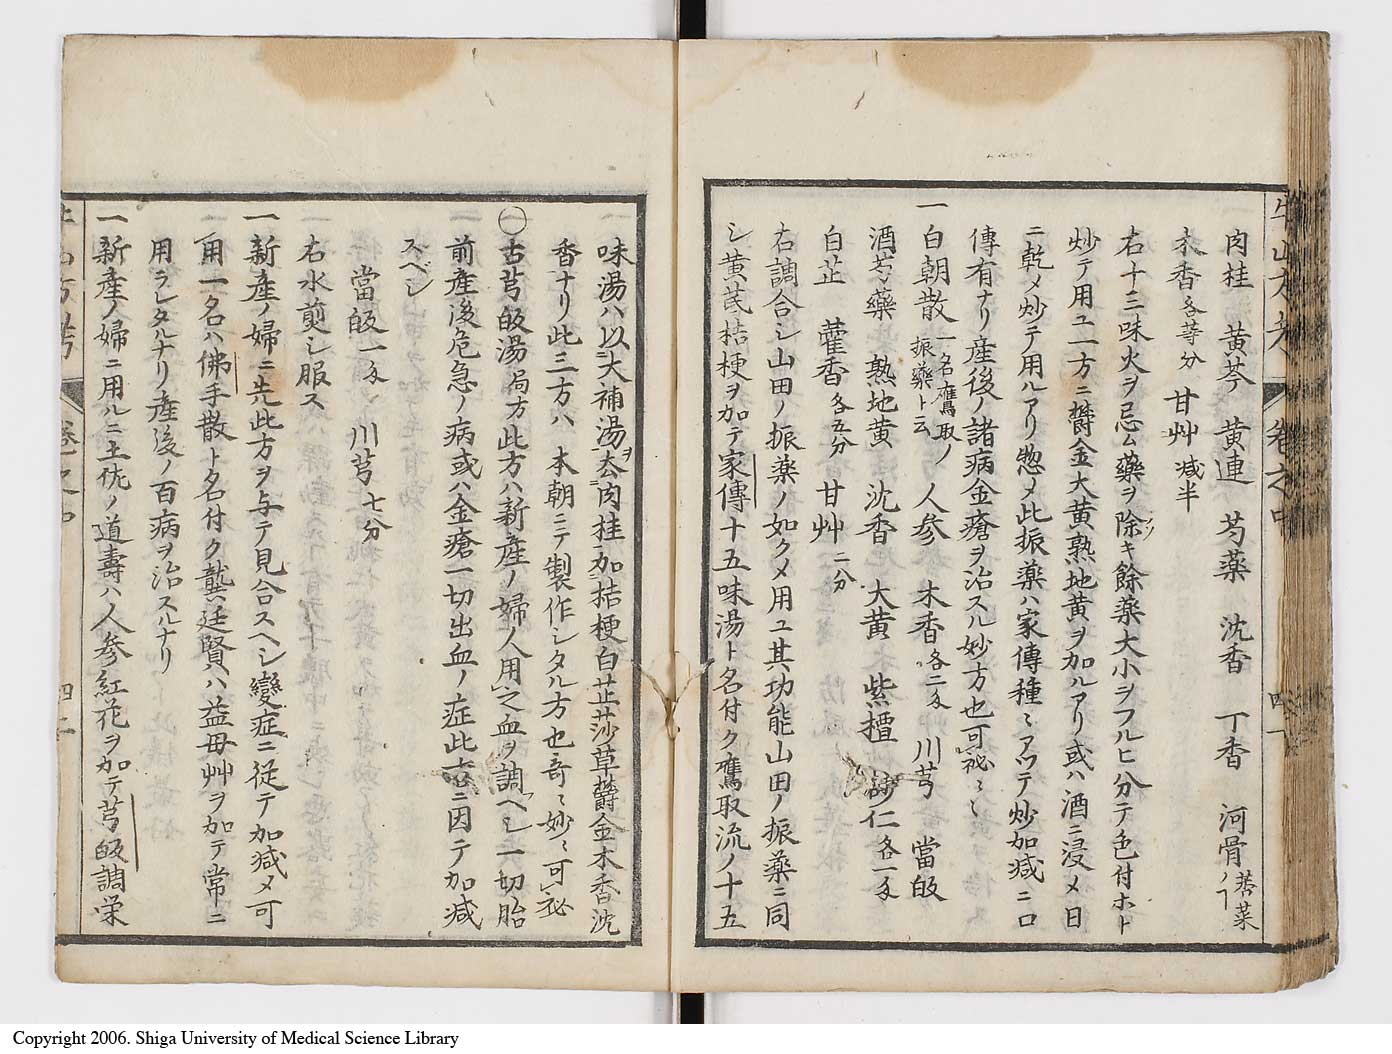 肉桂　黄芩　黄連　芍藥　沈香　丁香　河骨
木香各等分　甘艸减半
右十三味火ヲ忌ム藥ヲ除キ餘藥大小ヲフルヒ分テ色付ホト
炒テ用ユ一方ニ欝金大黄熟地黄ヲ加ルアリ或ハ酒ニ浸メ日
ニ乾メ炒テ用ルアリ惣メ此振藥ハ家傳種〻アツテ炒加减ニ口
傳有ナリ産後ノ諸病金瘡ヲ治スル妙方也可祕〻〻
一白朝散一名鷹取ノ振藥ト云　人参　木香各二匁　川芎　當皈
酒芍藥　熟地黄　沈香　大黄　紫檀　砂仁各一匁
白芷　藿香各五分　甘艸二分
右調合シ山田ノ振藥ノ如クメ用ユ其功能山田ノ振藥ニ同
シ黄芪桔梗ヲ加テ家傳十五味湯ト名付ク鷹取流ノ十五
味湯ハ以大補湯ヲ去肉桂加桔梗白芷莎草欝金木香沈
香ナリ此三方ハ本朝ニテ製作シタル方也奇〻妙〻可祕
一古芎皈湯局方此方ハ新産ノ婦人用之血ヲ調ヘシ一切胎
前産後危急ノ病或ハ金瘡一切出血ノ症此意ニ因テ加减
スベシ
當皈一匁　川芎七分
右水煎シ服ス
一新産ノ婦ニ先此方ヲ与テ見合スヘシ變症ニ従テ加减メ可
用一名ハ佛手散ト名付ク龔廷賢ハ益母艸ヲ加テ常ニ
用ラレタルナリ産後ノ百病ヲ治スルナリ
一新産ノ婦ニ用ルニ土佐ノ道壽ハ人参紅花ヲ加テ芎皈調栄
卷之中　四二
Copyright 2006. Shiga University of Medical Science Library